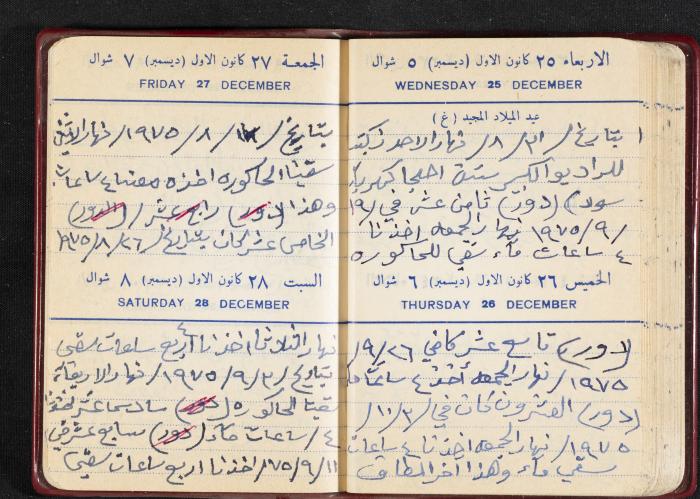 الاربعاء ٢٥ كانون الاول (ديسمبر) ٥ شوال
WEDNESDAY 25 DECEMBER
عيد الميلاد المجيد (غ)
بتاريخ / ٣١ / ٨ / نهار الاحد ركبت
للراديو الكبير
(دور) ثامن عشر في / ١٩
/ ٩ / ١٩٧٥ نهار الجمعه اخذنا
٤ ساعات مآء سقي للحاكوره
الخميس ٢٦ كانون الاول (ديسمبر) ٦ شوال
THURSDAY 26 DECEMBER
(دور) تاسع عشر كان في ٢٦ / ٩ /
١٩٧٥ / نهار الجمعه أخذنا ٤ ساعات مآء
(دور) العشرون كان في / ٣ / ١٠ /
١٩٧٥ / نهار الجمعه اخذنا ٤ ساعات
سقي مآء وهذا آخر المطاف
الجمعة ٢٧ كانون الاول (ديسمبر) ٧ شوال
FRIDAY 27 DECEMBER
بتاريخ / / ٨ / ١٩٧٥ / نهار الاثنين
سقينا الحاكوره اخذه معنا ٤ ساعات
وهذا (دور) رابع عشر / (الدور)
الخامس عشر كان بتاريخ / ٢٦ / ٨ / ١٩٧٥
السبت ٢٨ كانون الاول (ديسمبر) ٨ شوال
SATURDAY 28 DECEMBER
نهار الثلاثاء اخذنا اربع ساعات سقي
بتاريخ / ٣ / ٩ / ١٩٧٥ / نهار الاربعاء
سقينا الحاكوره (دور) سادس عشر
٤ / ساعات مآء (دور) سابع عشر في
١١ / ٩ / ٧٥ / اخذنا اربع ساعات سقي